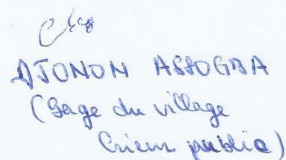 AJONON ASSOGBA
(Sage du village
Crieur public)